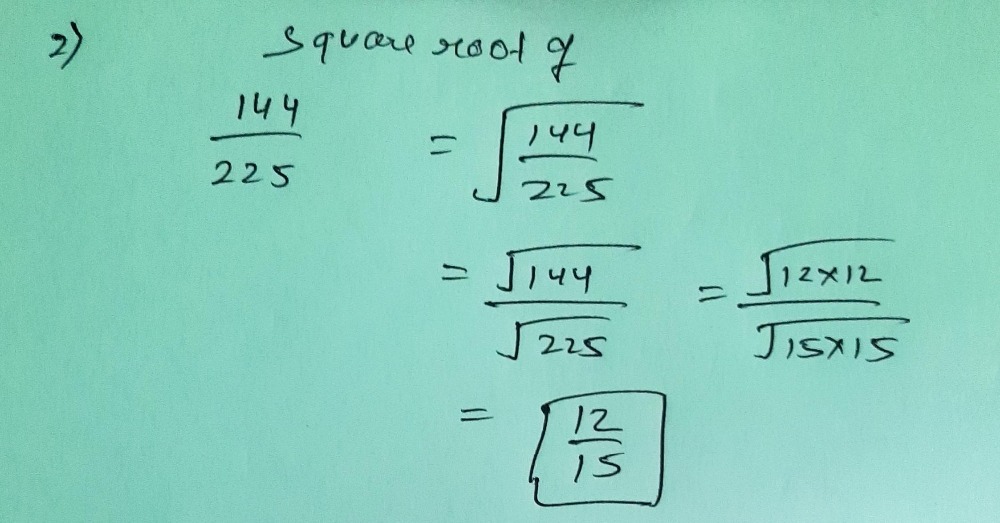 2) square root of
144/225 = √(144/225)
= √144/√225 = √12×12/√15×15
= 12/15